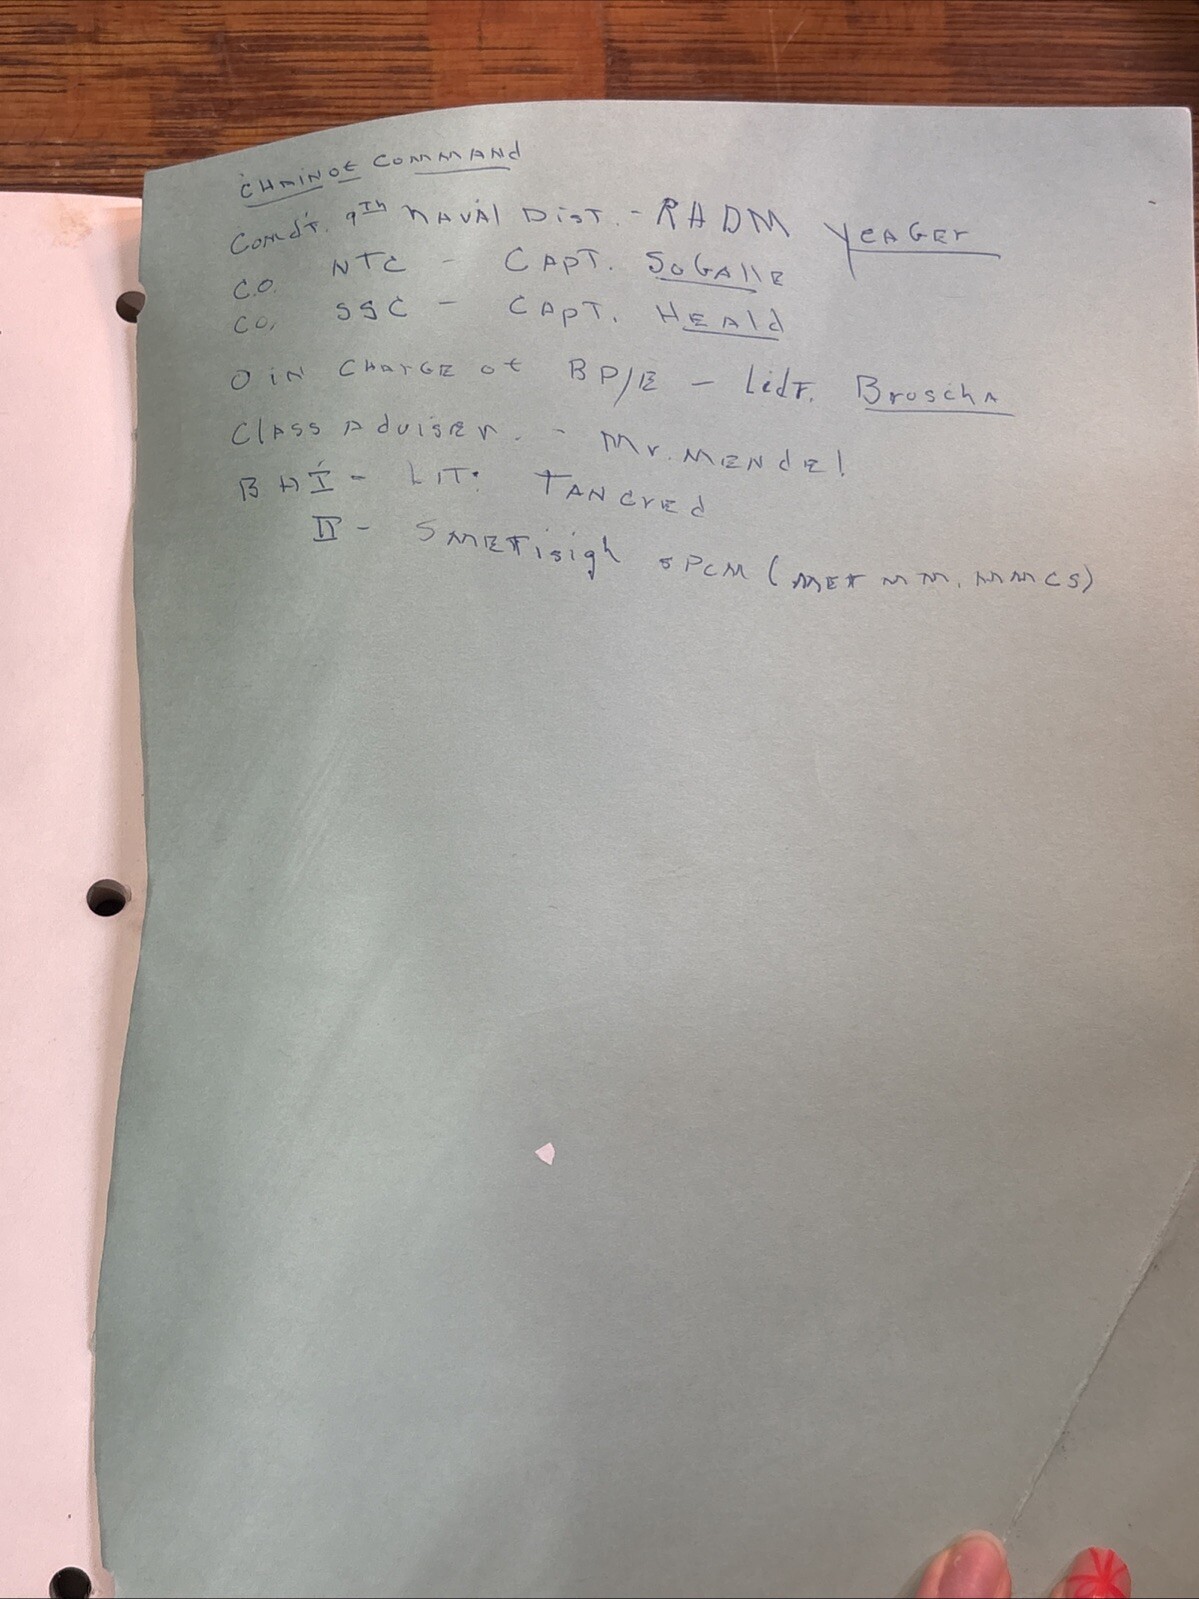 CHAIN OF COMMAND
Comdt. 9Th NAVAl DisT. - RADM YeAGEr
C.O. NTC - CApT. SoGAllE
CO. SSC - CApT. HEAld
O iN CHArGE of BP/E - LtdT. BroschA
ClAss AdvisEr. - Mr. MENdEl
BH I - LIT. TANcrEd
II - SMETisigh SPCM (MET MM. MMCS)